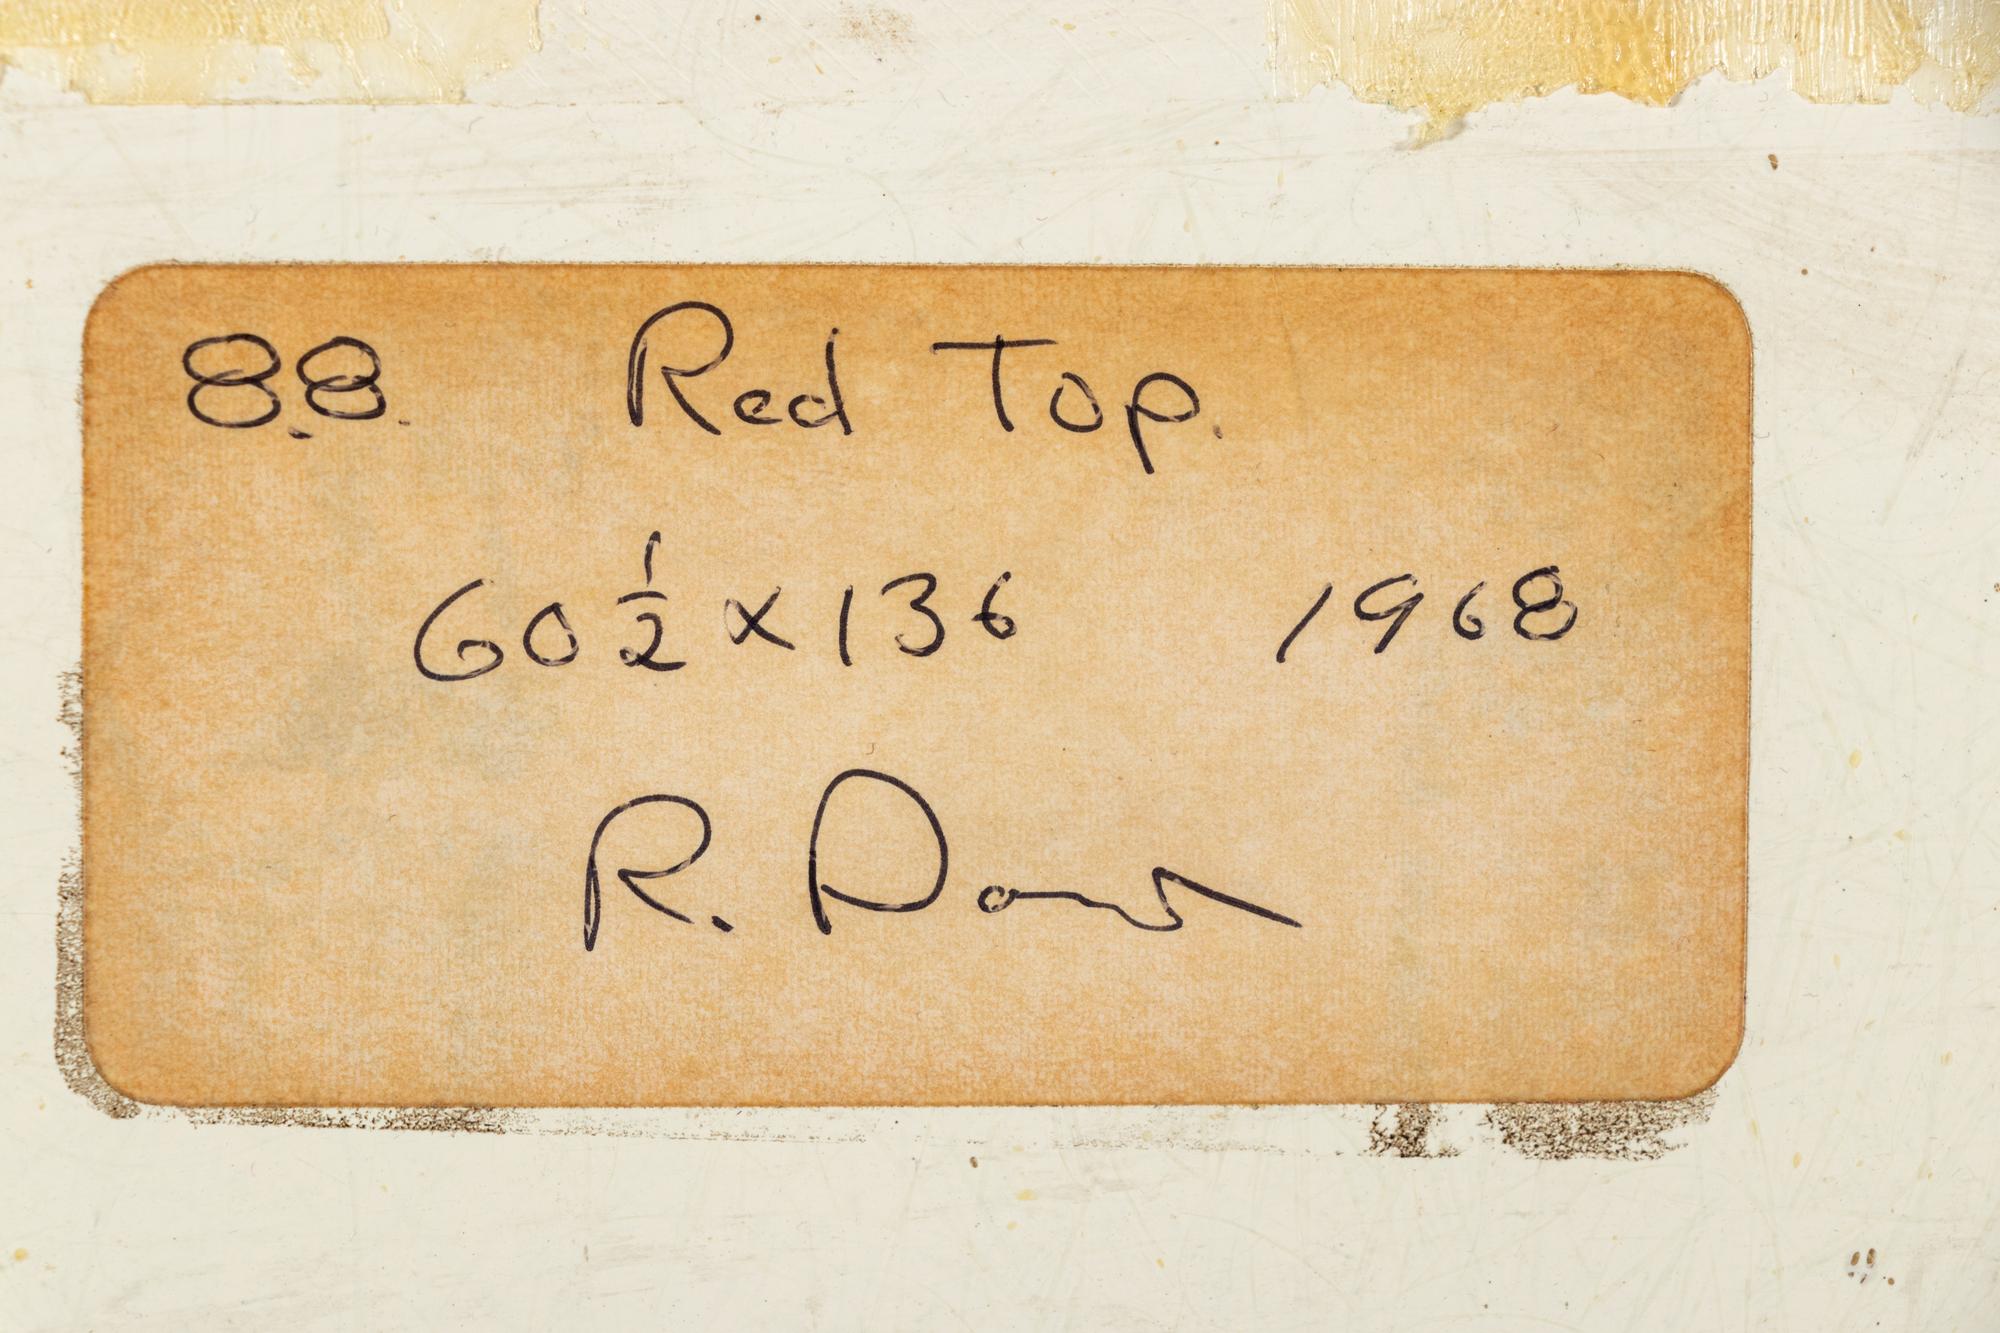 88. Red Top.
60 ½ x 136 1968
R. Davis